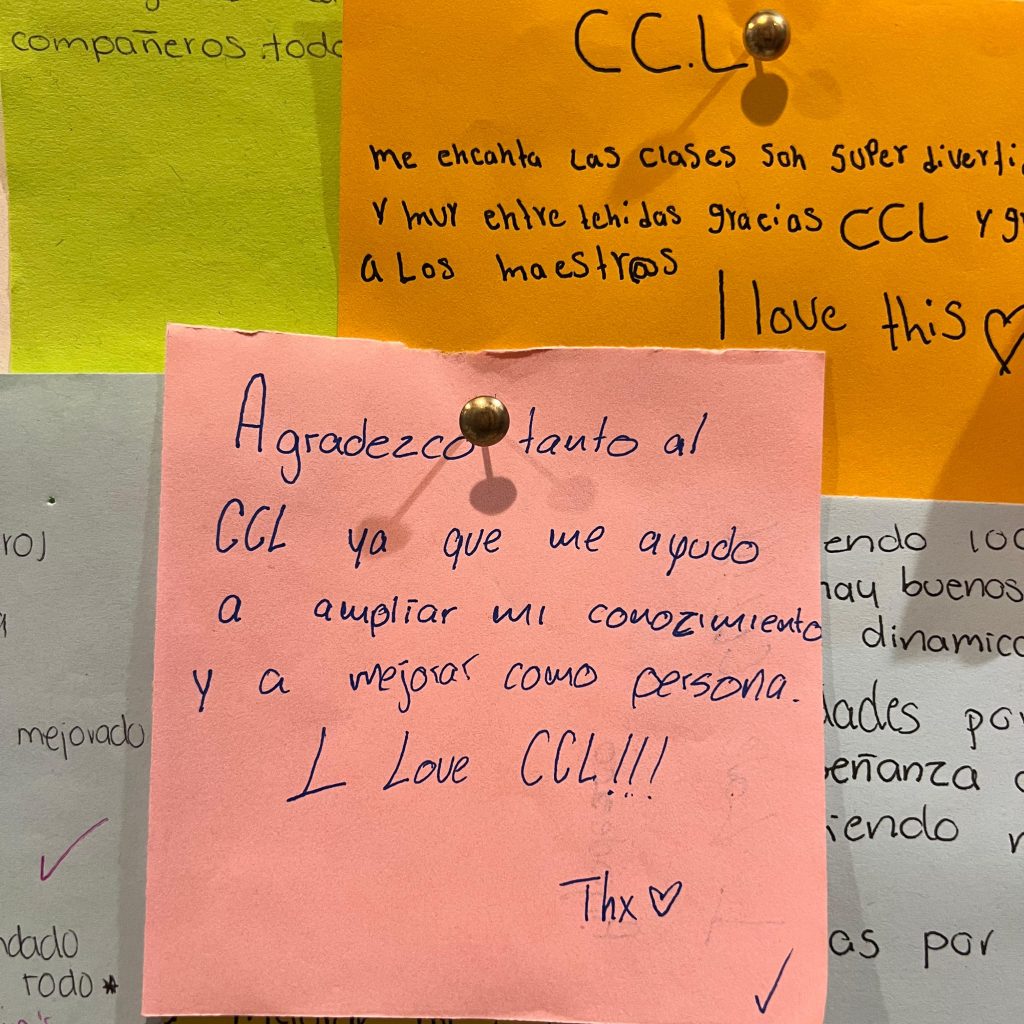 compañeros.
CC.L
me encanta Las clases son super
Y muy entretenidas gracias CCL Y
a Los maestr@s
I love this ♡
Agradezco tanto al
CCL ya que me ayudo
a ampliar mi conozimiento
y a mejorar como persona.
L Love CCL!!!
Thx ♡
mejorado
rodo*
endo 100
hay buenos
dinamico
dades por
eñanza
iendo
as por